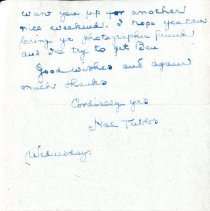 want you up for another
nice weekend. I hope you can
bring yr photographer friend
and I'll try to get Ben
Good wishes and again
much thanks
Cordially yrs
Wednesday.